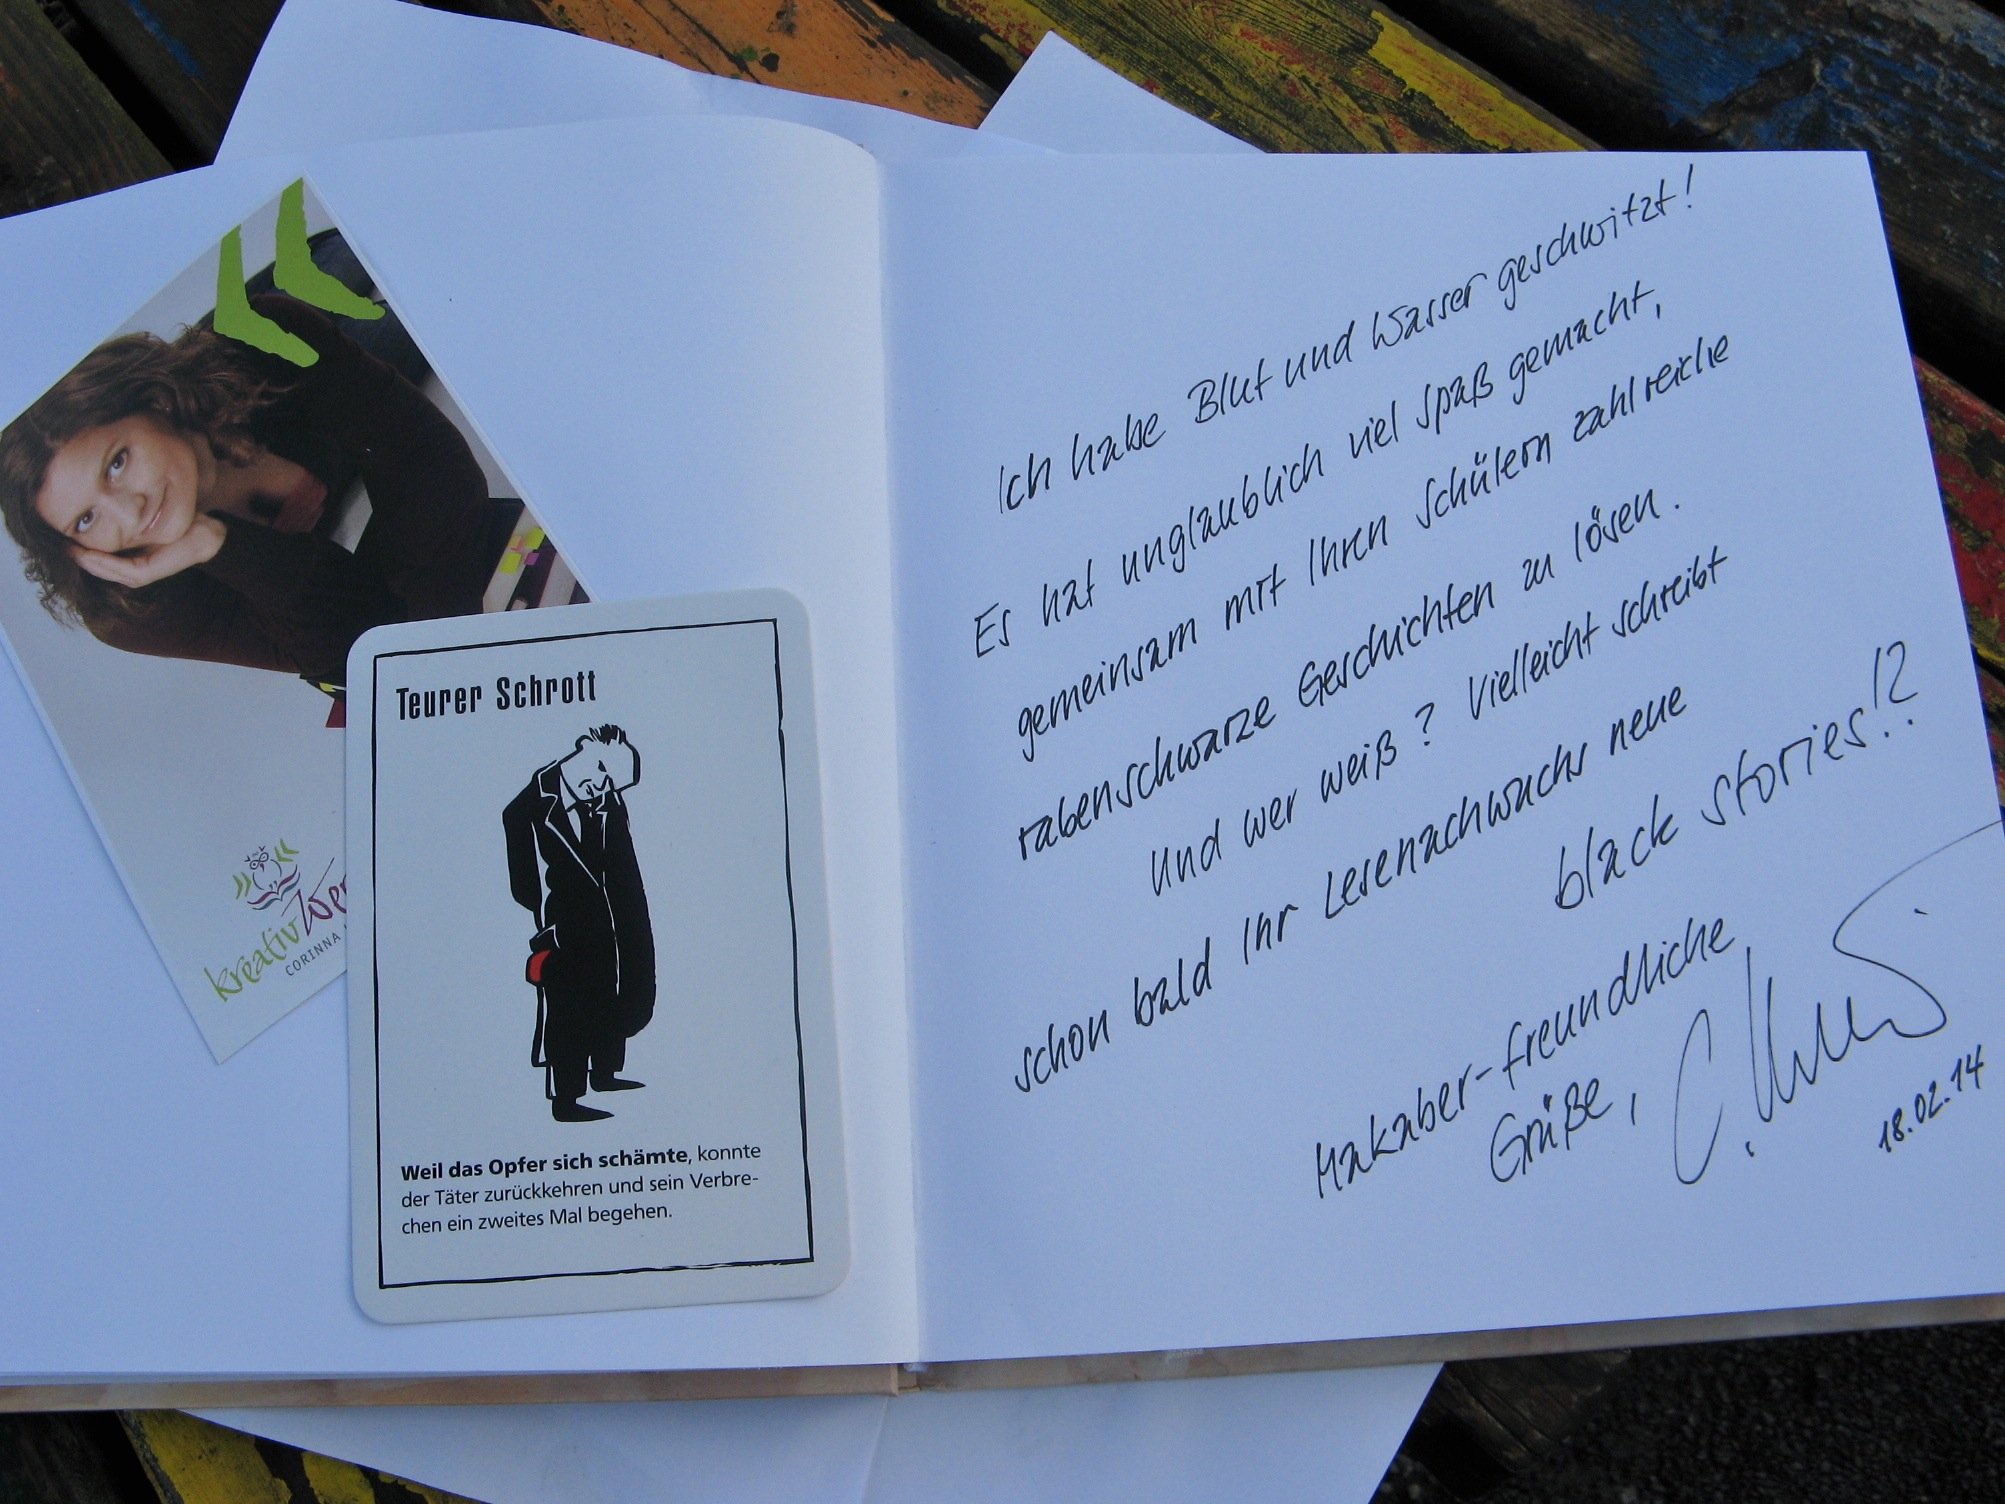 kreativ
CORINNA
Teurer Schrott
Weil das Opfer sich schämte, konnte
der Täter zurückkehren und sein Verbre-
chen ein zweites Mal begehen.
Ich habe Blut und Wasser geschwitzt!
Es hat unglaublich viel Spaß gemacht,
gemeinsam mit Ihren Schülern zahlreiche
rabenschwarze Geschichten zu lösen.
Und wer weiß? Vielleicht schreibt
schon bald Ihr Lesenachwuchs neue
black stories!?
Makaber-freundliche
Grüße,
18.02.14